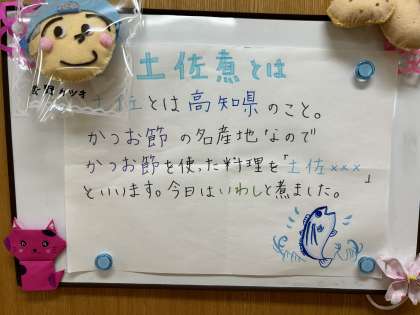 土佐煮とは
土佐とは高知県のこと。
かつお節の名産地なので
かつお節を使った料理を「土佐×××」
といいます。今日はいわしと煮ました。